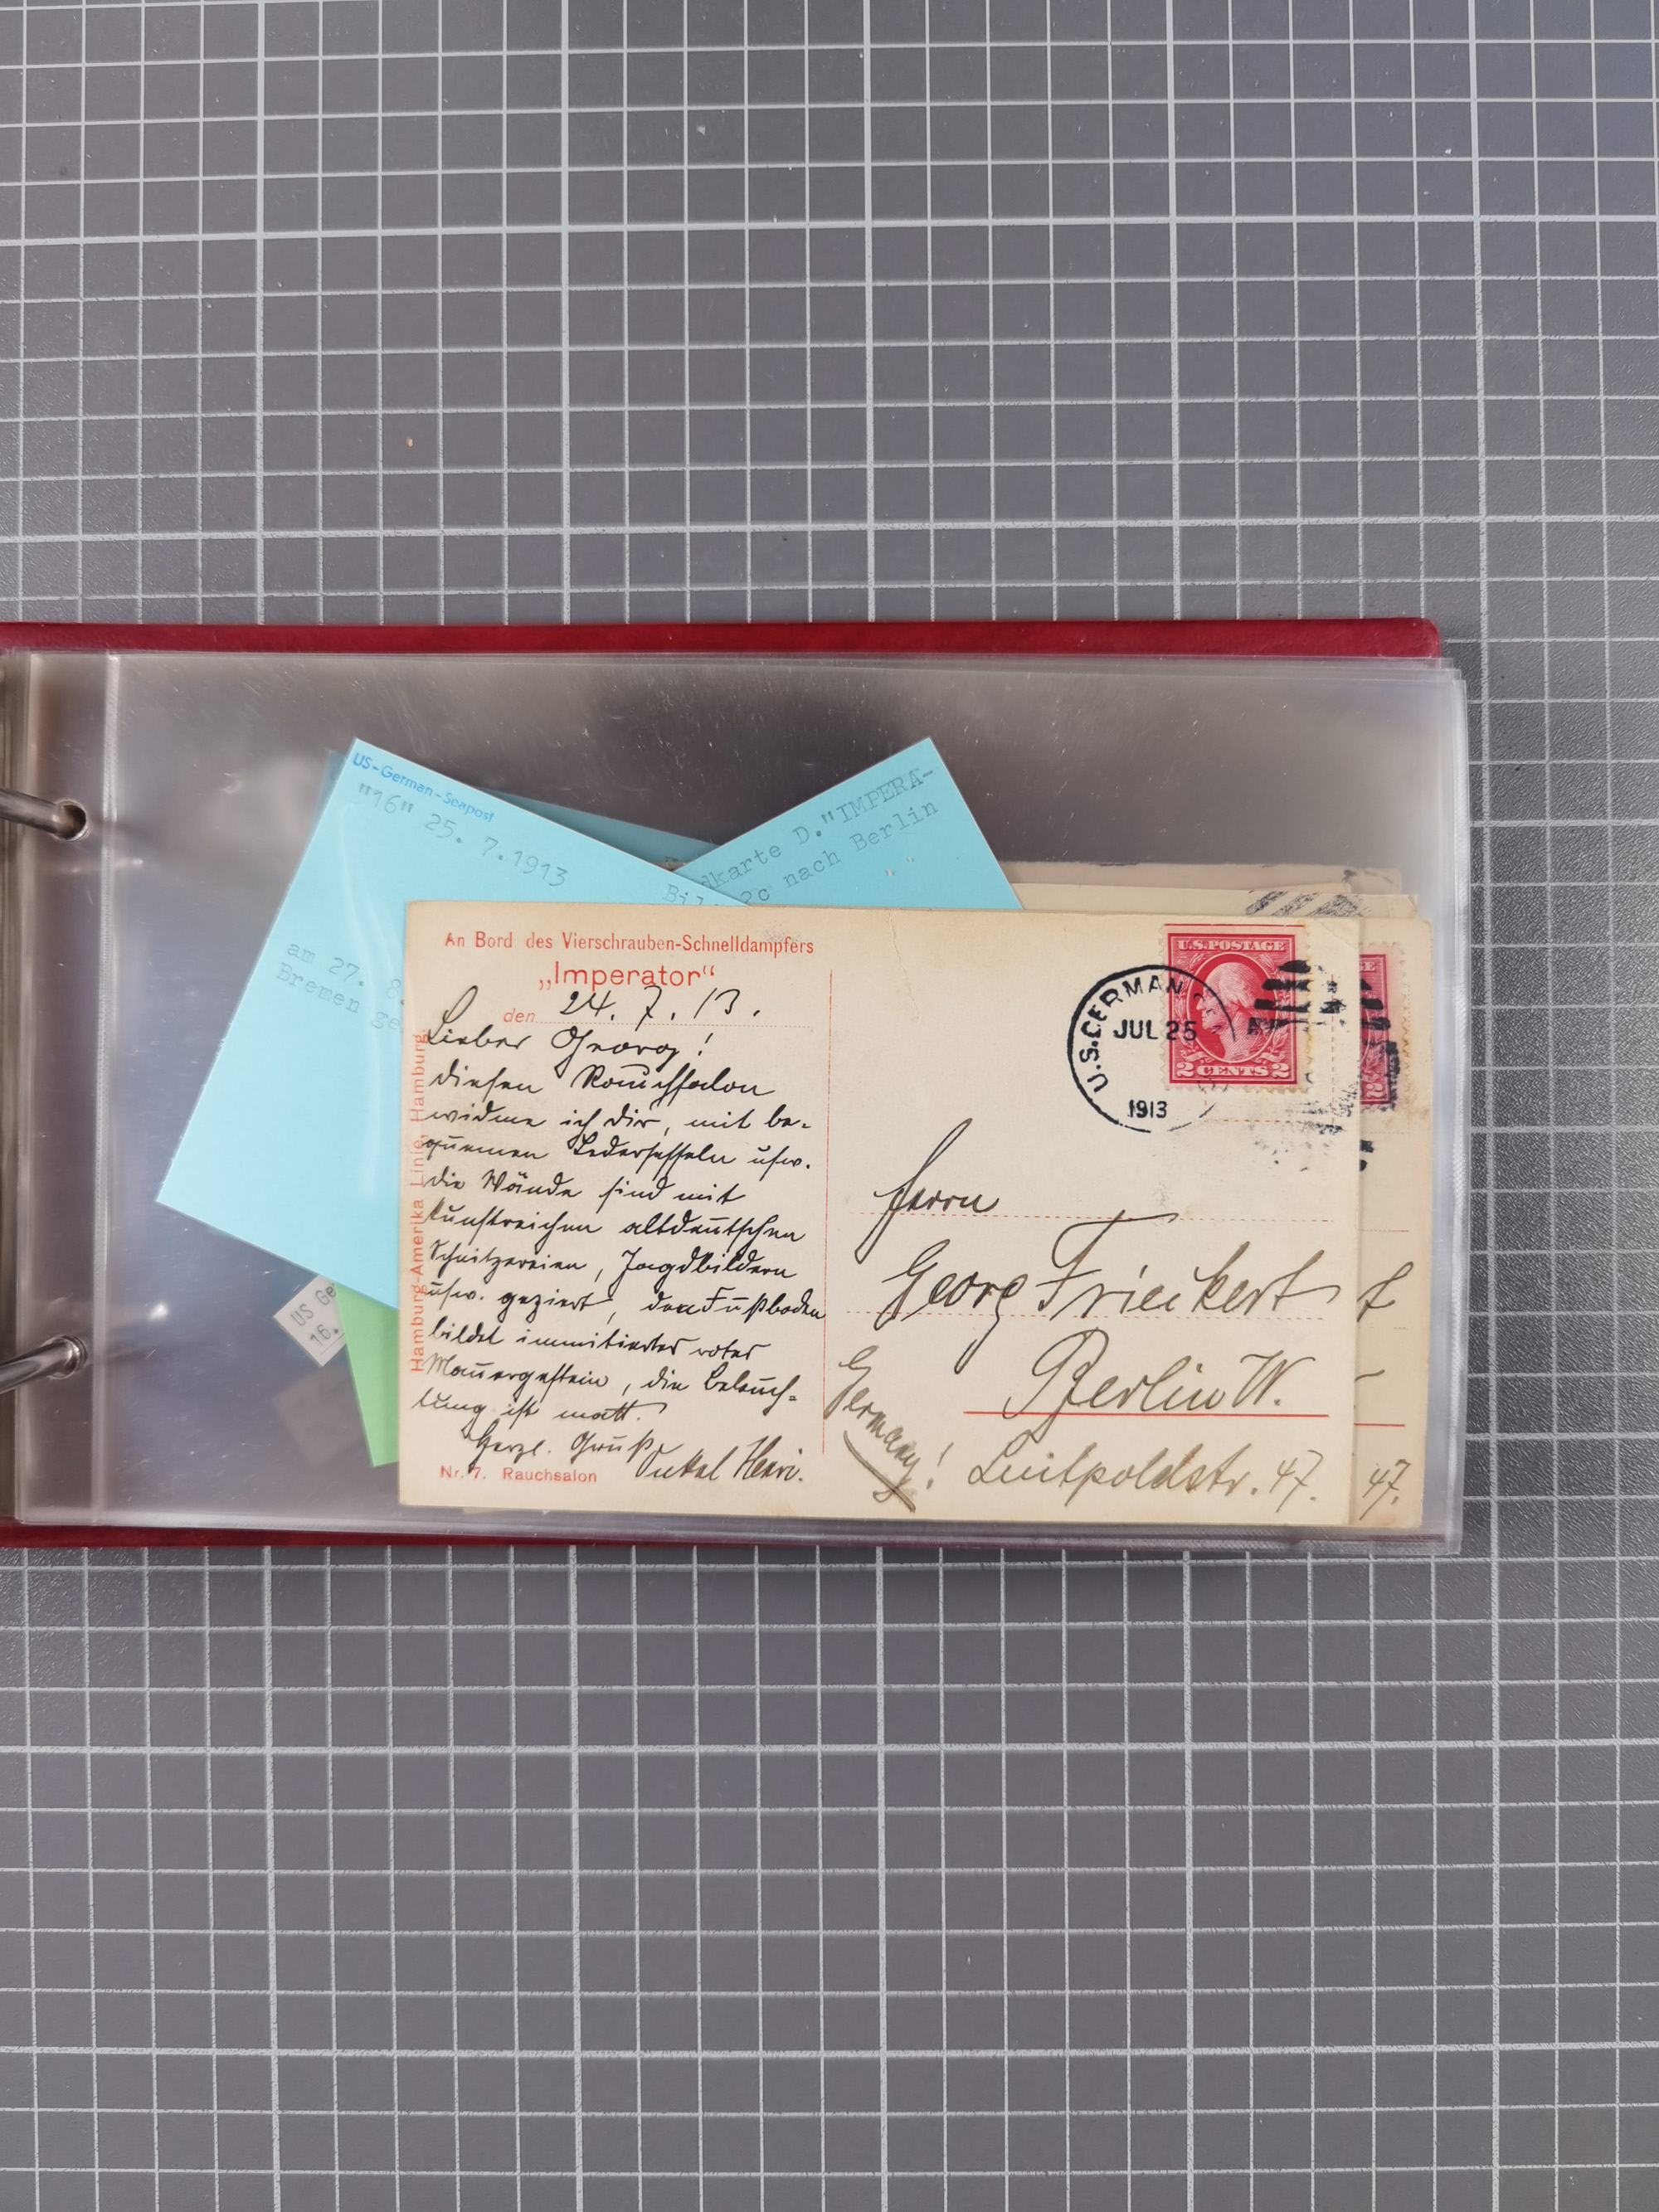 US-German-Seapost
"16" 25. 7.1913
am 27. 8.
Bremen ge
dkarte D."IMPERA-
Bil 2c nach Berlin
US Ge
16.
An Bord des Vierschrauben-Schnelldampfers
„Imperator“
den 24. 7. 13.
Lieber Georg!
diesen Rauchsalon
widme ich dir, mit be-
quemen Ledersesseln usw.
die Wände sind mit
kunstreichen altdeutschen
Schnitzereien, Jagdbildern
usw. geziert, den Fußboden
bildet immitierter roter
Mauergestein, die Beleuch-
tung ist matt.
Herzl. Gruß Onkel Heinr.
Nr. 7. Rauchsalon
Hamburg-Amerika Linie, Hamburg.
U.S. GERMAN SEA
JUL 25
1913
U.S. POSTAGE
2 CENTS 2
Herrn
Georg Frieckert
Berlin W.
Germany! Luitpoldstr. 47.
47.